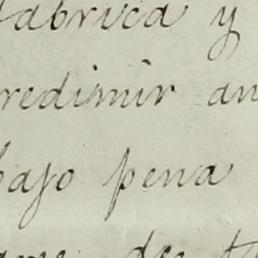 fabrica y
redimir an
bajo pena
de